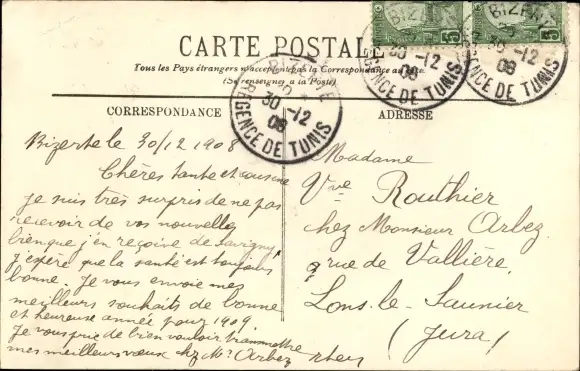 CARTE POSTALE
Tous les Pays étrangers n'acceptent pas la Correspondance au
(Se renseigner à la Poste)
BIZERTE
30 -12
08
RÉGENCE DE TUNIS
BIZERTE
30 -12
08
RÉGENCE DE TUNIS
BIZERTE
30 -12
08
RÉGENCE DE TUNIS
5
5
CORRESPONDANCE
Bizerte le 30/12 1908
Chères tante et cousine
je suis très surpris de ne pas
recevoir de vos nouvelles
bien que j'en reçoive de Savigny
j'espère que la santé est toujours
bonne. Je vous envoie mes
meilleurs souhaits de bonne
et heureuse année pour 1909.
Je vous prie de bien vouloir transmettre
mes meilleurs vœux chez Mr Arbez
ADRESSE
Madame
Vve Routhier
chez Monsieur Arbez
rue de Vallière,
Lons-le-Saunier
(Jura)